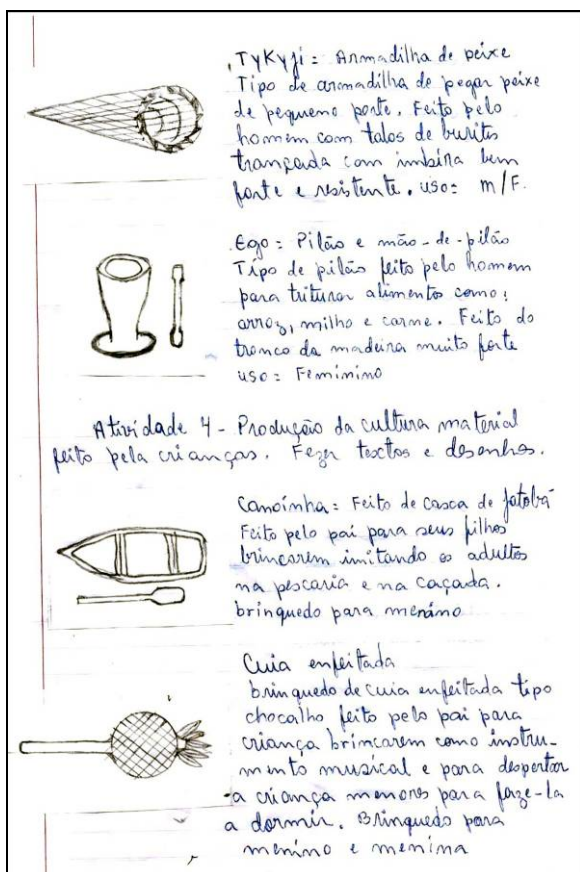 TyKyji = Armadilha de peixe
Tipo de armadilha de pegar peixe
de pequeno porte. Feito pelo
homem com talos de buritis
trançada com imbira bem
forte e resistente. uso = m/F.
Ego = Pilão e mão-de-pilão
Tipo de pilão feito pelo homem
para triturar alimentos como:
arroz, milho e carne. Feito do
tronco da madeira muito forte
uso = Feminino
Atividade 4 - Produção da cultura material
feito pela crianças. Fezer textos e desenhos.
Canoínha = Feito de casca de Jatobá
Feito pelo pai para seus filhos
brincarem imitando os adultos
na pescaria e na caçada.
brinquedo para menino
Cuia enfeitada
brinquedo de cuia enfeitada tipo
chocalho feito pelo pai para
criança brincarem como instru-
mento musical e para despertar
a criança menores para faze-la
a dormir. Brinquedo para
menino e menina